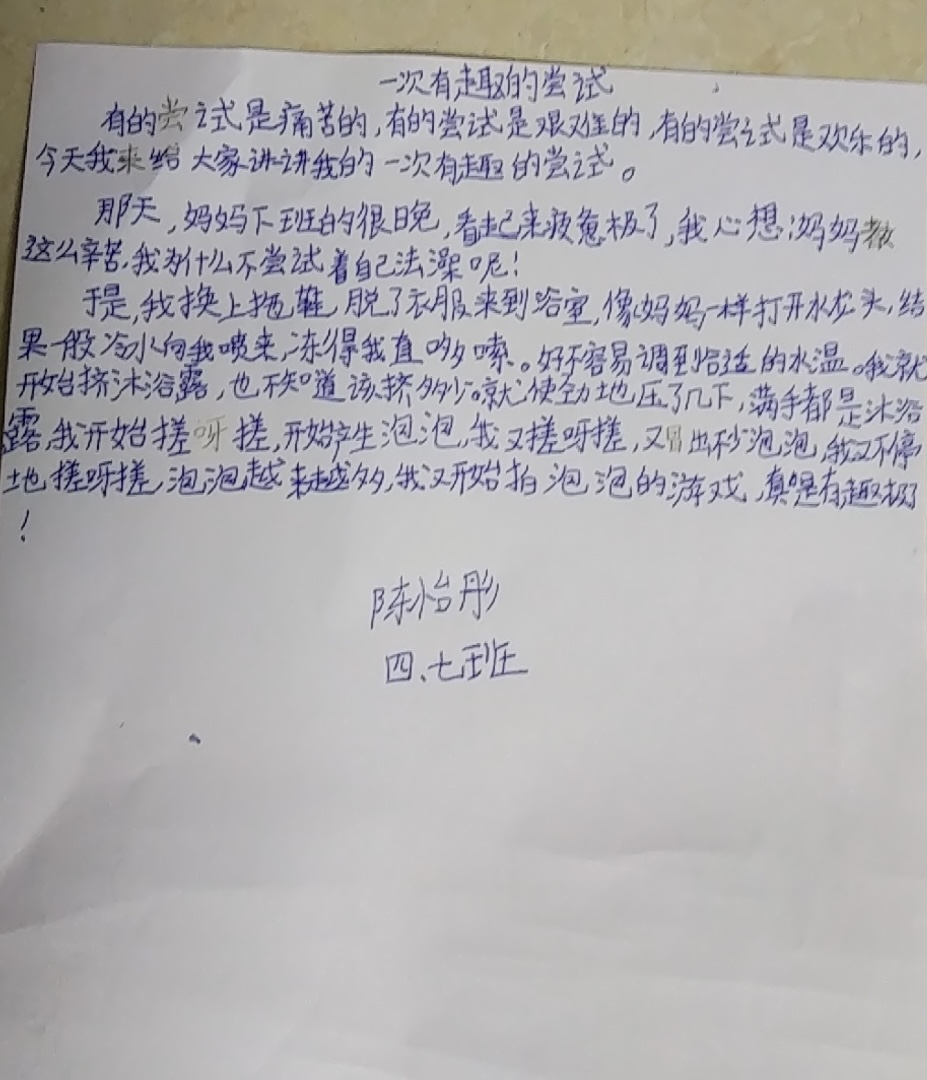 一次有趣的尝试
有的尝试是痛苦的,有的尝试是艰难的,有的尝试是欢乐的,
今天我来给大家讲讲我的一次有趣的尝试。
那天,妈妈下班的很晚,看起来疲惫极了,我心想:妈妈
这么辛苦,我为什么不尝试着自己洗澡呢!
于是,我换上拖鞋,脱了衣服来到浴室,像妈妈一样打开水龙头,结
果一股冷水向我喷来,冻得我直哆嗦。好不容易调到合适的水温。我就
开始挤沐浴露,也不知道该挤多少。就使劲地压了几下,满手都是沐浴
露,我开始搓呀搓,开始产生泡泡,我又搓呀搓,又冒出些泡泡,我又不停
地搓呀搓,泡泡越来越多,我又开始拍泡泡的游戏,真是有趣极了
!
陈怡彤
四、七班